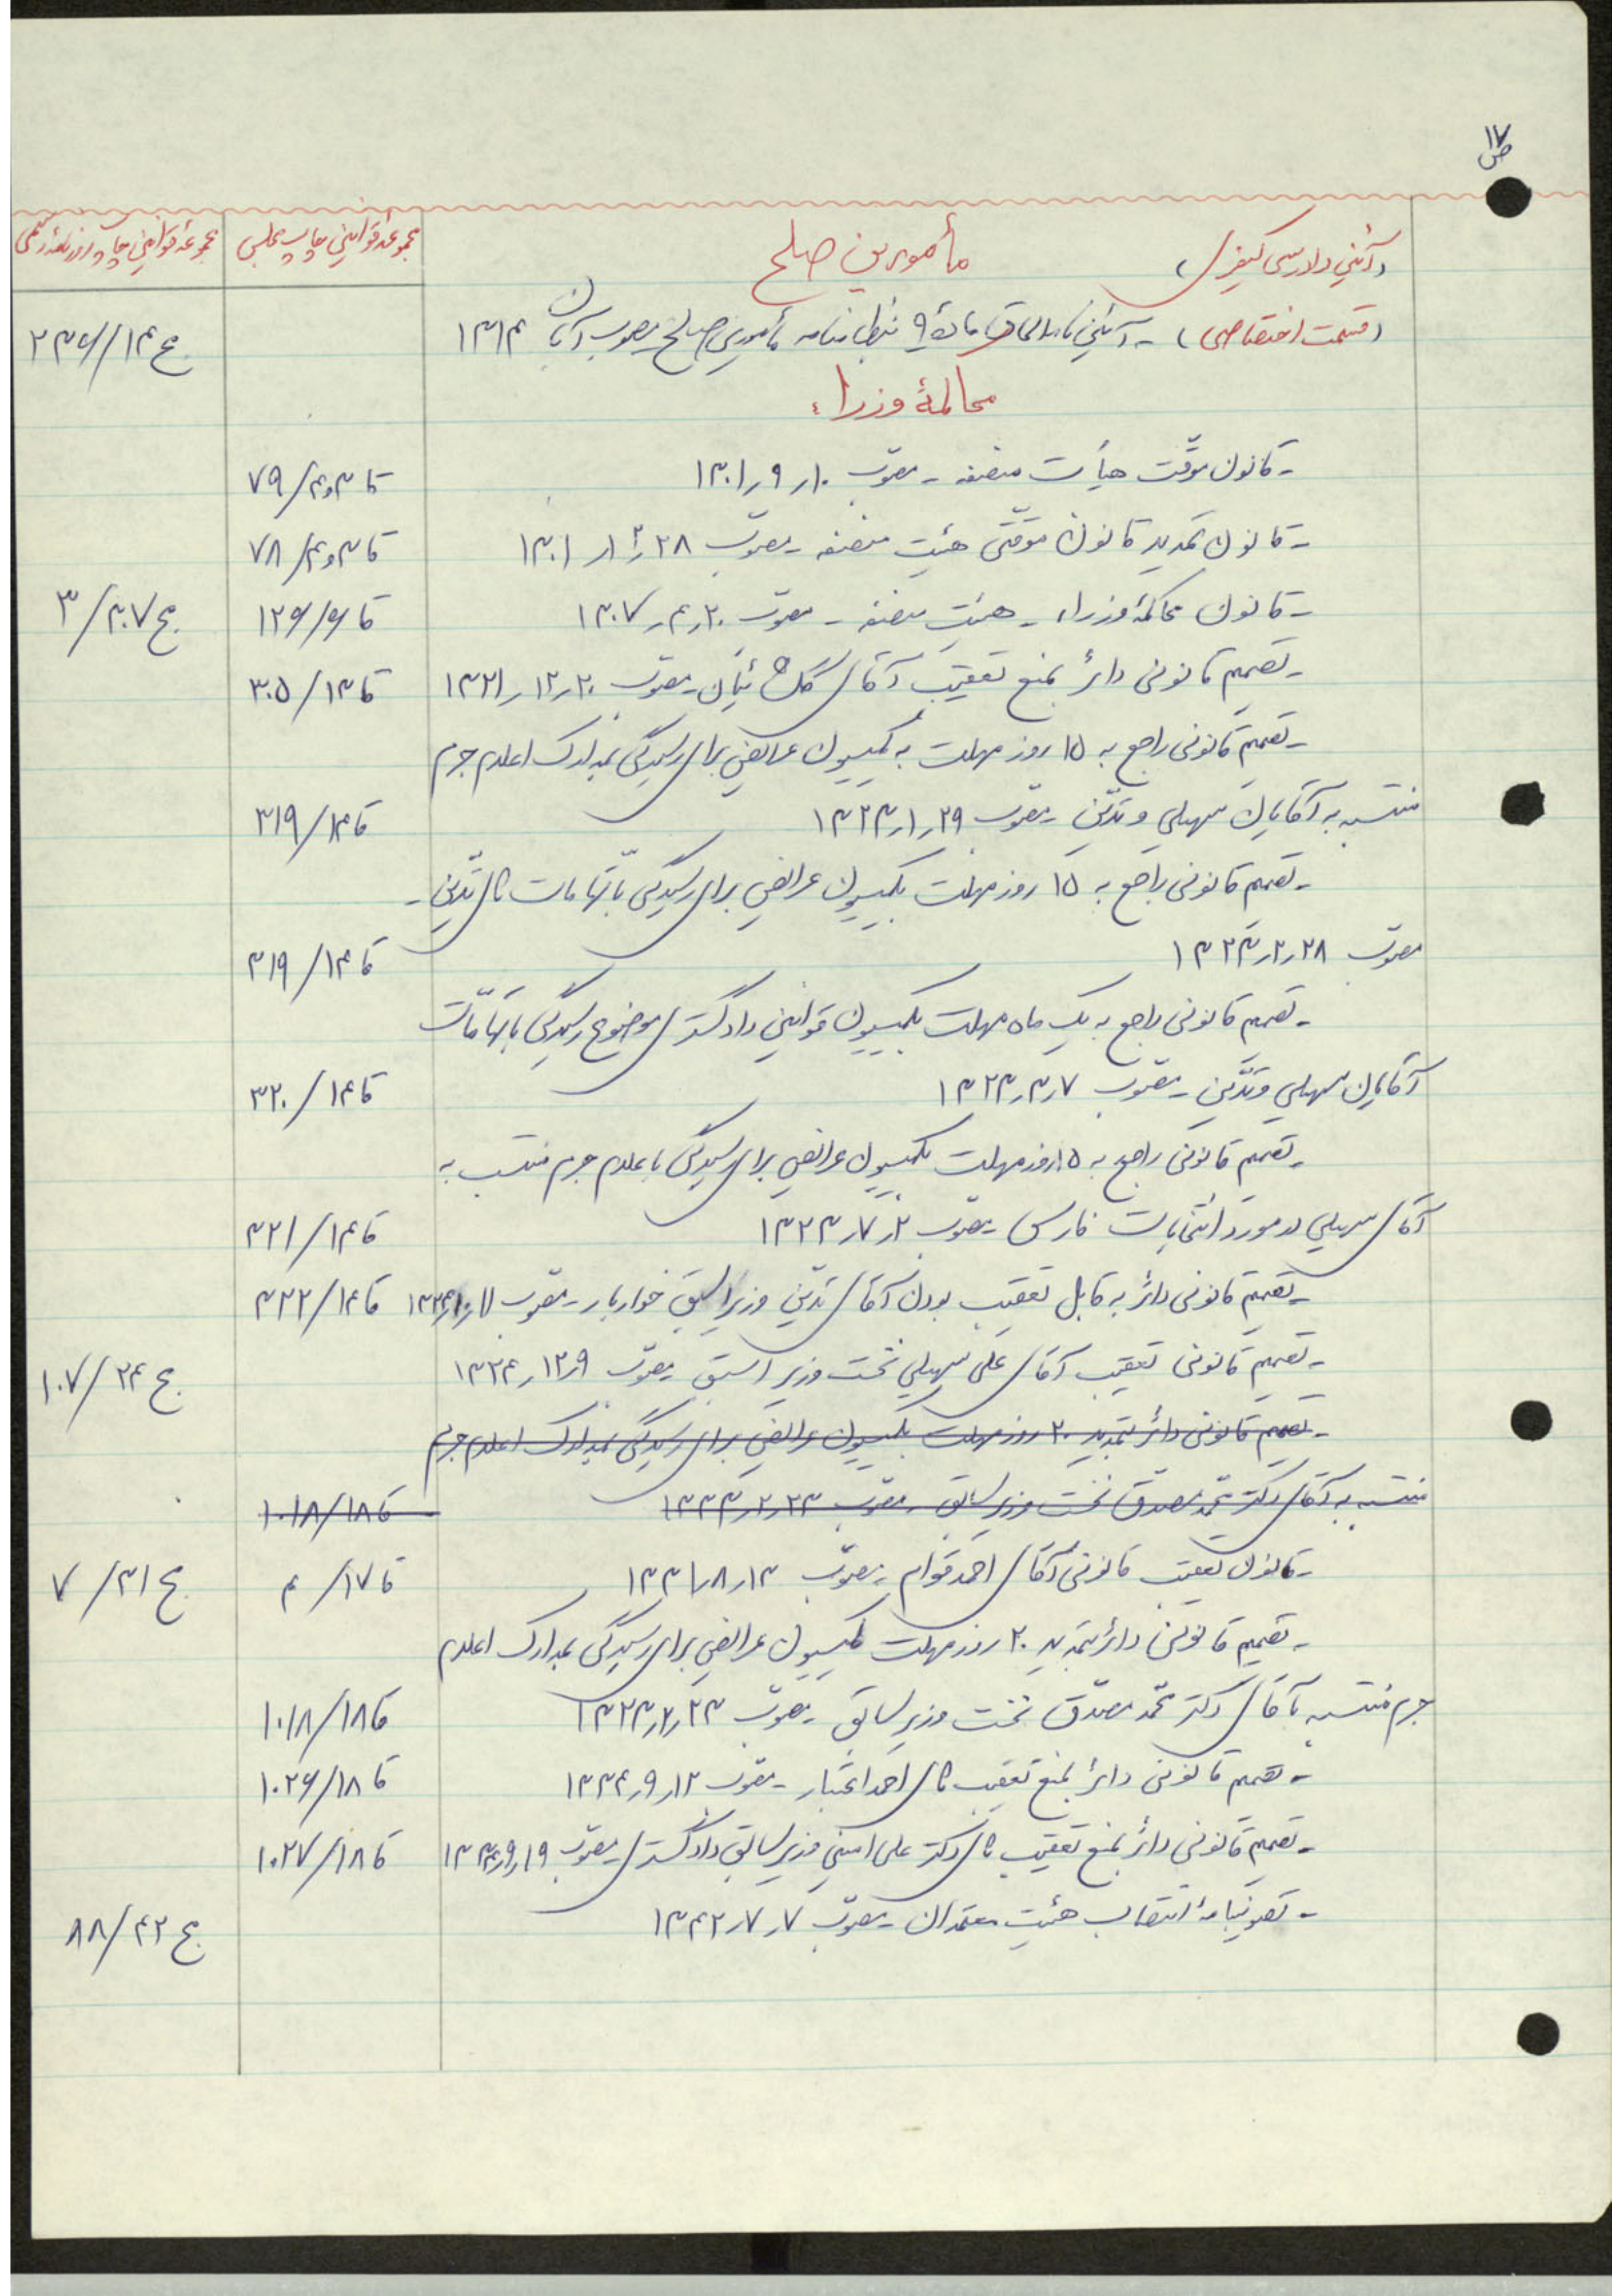 ص ۱۷
(آئین دادرسی کیفری) مأمورین صلح مجموعه قوانین چاپ مجلس مجموعه قوانین چاپ روزنامه رسمی
(قسمت اختصاصی) - آئین نامه الحاق ماده ۹ نظامنامه مأمورین صلح مصوب آبان ۱۳۱۴ ج ۱۴/۲۳۶
محاکمهٔ وزراء
- قانون موقّت هیأت منصفه - مصوّب ۱۰ر۹ر۱۳۰۱ قا ۳و۴/۷۹
- قانون تمدید قانون موقّتی هیئت منصفه - مصوّب ۲۸ر۱۱ر۱۳۰۱ قا ۳و۴/۷۸
- قانون محاکمهٔ وزراء - هیئت منصفه - مصوّب ۲۰ر۴ر۱۳۰۷ قا ۶/۱۲۶ ج ۳۰۷/۳
- تصمیم قانونی دائر بمنع تعقیب آقای گلشائیان - مصوّب ۲۰ر۱۲ر۱۳۲۱ قا ۱۳/۳۰۵
- تصمیم قانونی راجع به ۱۵ روز مهلت به کمیسیون عرایض برای رسیدگی بمدارک اعلام جرم
منتسبه به آقایان سهیلی و تدیّن - مصوّب ۲۹ر۱ر۱۳۲۳ قا ۱۴/۳۱۹
- تصمیم قانونی راجع به ۱۵ روز مهلت بکمیسیون عرایض برای رسیدگی باتّهامات آقای تدیّن -
مصوّب ۲۸ر۲ر۱۳۲۳ قا ۱۴/۳۱۹
- تصمیم قانونی راجع به یک ماه مهلت بکمیسیون قوانین دادگستری موضوع رسیدگی باتهامات
آقایان سهیلی و تدّین - مصوّب ۷ر۳ر۱۳۲۳ قا ۱۴/۳۲۰
- تصمیم قانونی راجع به ۱۵ روز مهلت بکمیسیون عرایض برای رسیدگی باعلام جرم منتسب به
آقای سهیلی در مورد انتخابات فارس - مصوّب ۲ر۷ر۱۳۲۳ قا ۱۴/۳۲۱
- تصمیم قانونی دائر به قابل تعقیب بودن آقای تدیّن وزیر اسبق خواربار - مصوّب قا ۱۴/۳۲۲
- تصمیم قانونی تعقیب آقای علی سهیلی نخست وزیر اسبق - مصوّب ۹ر۱۲ر۱۳۲۴ ج ۲۴/۱۰۷
- تصمیم قانونی دائر بتمدید ۲۰ روز مهلت بکمیسیون عرایض برای رسیدگی بمدارک اعلام جرم
منتسبه به آقای دکتر محمّد مصدّق نخست وزیر سابق - مصوّب ۲۳ر۲ر۱۳۳۳ قا ۱۸/۱۰۱۸
- قانون تعقیب قانونی آقای احمد قوام - مصوّب ۱۳ر۸ر۱۳۳۱ قا ۱۷/۴ ج ۳۱/۷
- تصمیم قانونی دائر بتمدید ۲۰ روز مهلت بکمیسیون عرایض برای رسیدگی بمدارک اعلام
جرم منتسبه بآقای دکتر محمّد مصدّق نخست وزیر سابق - مصوّب ۲۳ر۲ر۱۳۳۳ قا ۱۸/۱۰۱۸
- تصمیم قانونی دائر بمنع تعقیب آقای احمد اعتبار - مصوّب ۱۲ر۹ر۱۳۳۴ قا ۱۸/۱۰۲۶
- تصمیم قانونی دائر بمنع تعقیب آقای دکتر علی امینی وزیر سابق دادگستری - مصوّب ۱۹ر۹ر۱۳۳۴ قا ۱۸/۱۰۲۷
- تصویبنامهٔ انتصاب هیئت معتمدان - مصوّب ۷ر۷ر۱۳۴۲ ج ۴۲/۸۸